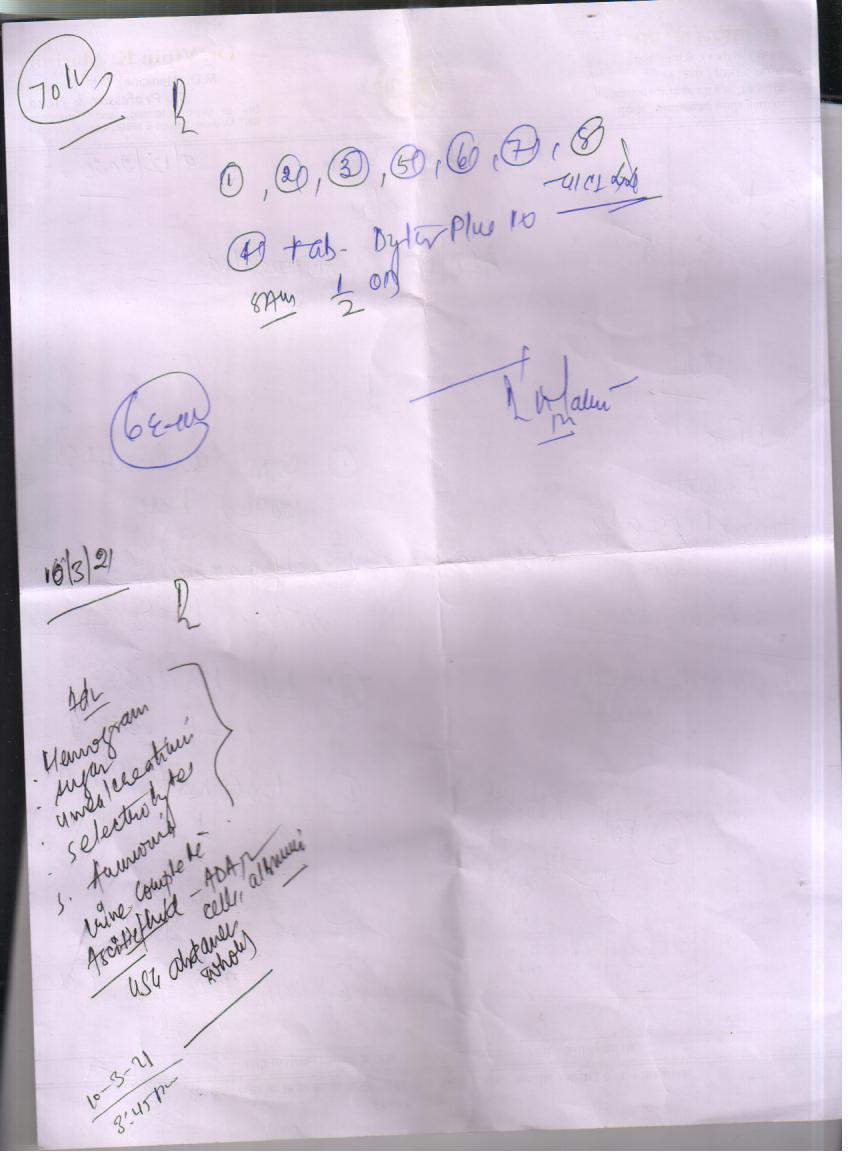 70 k
R
1, 2, 3, 5, 6, 7, 8
4 tab- Dytor Plus 10
8Am 1/2 OD
10/3/21
R
Adv
· Hemogram
· sugar
· urea/creatinine
· S electrolytes
S. Ammonia
Urine Complete
Ascitic fluid - ADA
cells, albumin
USG abdomen
whole
10-3-21
8:45 Pm